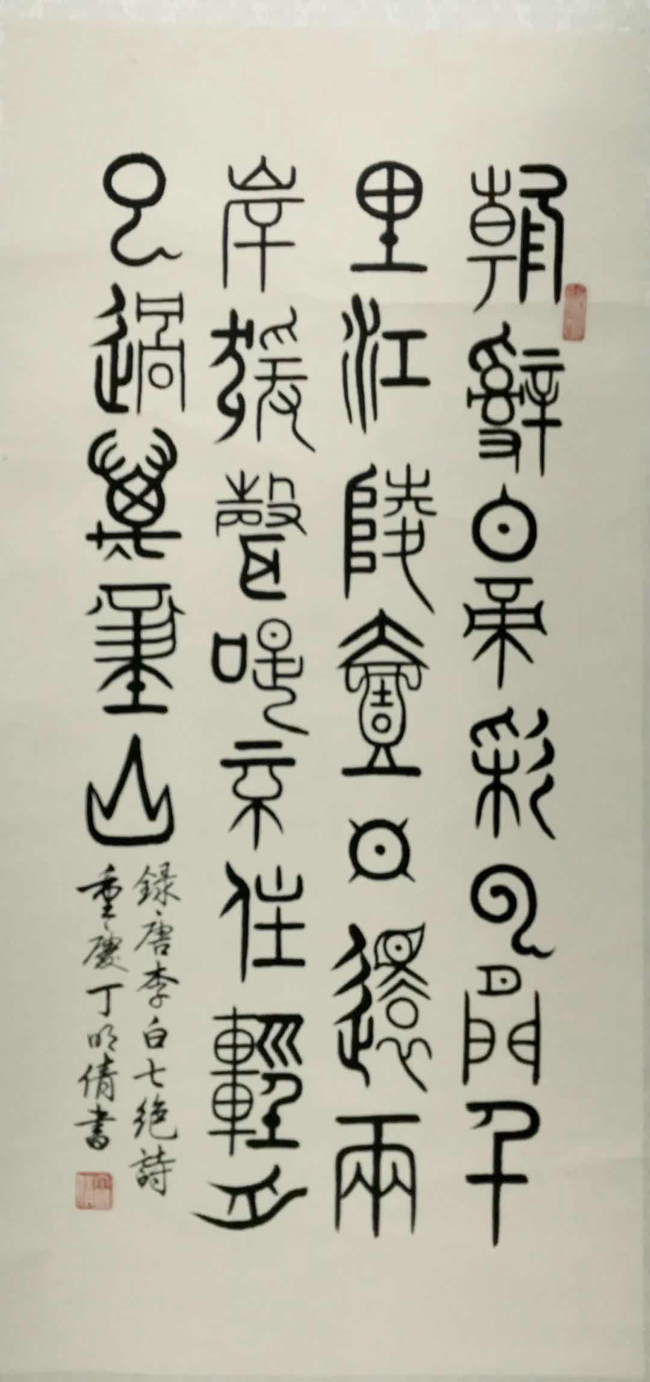 朝辭白帝彩云間千
里江陵壹日還兩
岸猨聲啼不住輕舟
已過萬重山
録唐李白七絶詩
重慶丁明倩書